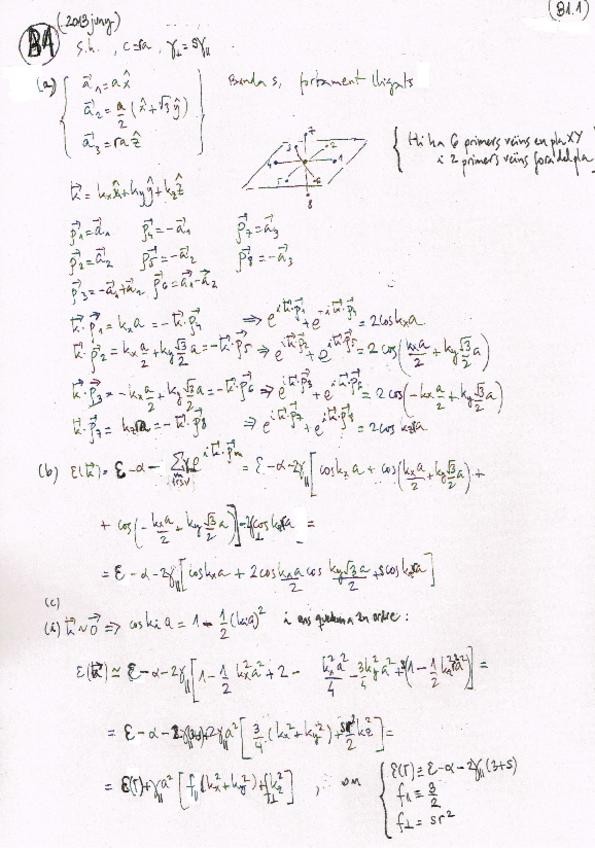 (B1.1)
(2013 juny)
B1 s.h. , c=ra , γ⊥=sγ∥
(a) { a⃗1=a x̂
a⃗2=a/2 (x̂+√3 ŷ)
a⃗3=ra ẑ }
Banda s, fortament lligats
3 7 2
4 1
5 6
8
{ Hi ha 6 primers veïns en pla XY
i 2 primers veïns fora del pla
k⃗=kx x̂+ky ŷ+kz ẑ
ρ⃗1=a⃗1 ρ⃗4=-a⃗1 ρ⃗7=a⃗3
ρ⃗2=a⃗2 ρ⃗5=-a⃗2 ρ⃗8=-a⃗3
ρ⃗3=-a⃗1+a⃗2 ρ⃗6=a⃗1-a⃗2
k⃗·ρ⃗1=kx a=-k⃗·ρ⃗4 ⇒ e^{ik⃗·ρ⃗1}+e^{-ik⃗·ρ⃗4}=2cos kx a
k⃗·ρ⃗2=kx a/2+ky √3/2 a=-k⃗·ρ⃗5 ⇒ e^{ik⃗·ρ⃗2}+e^{ik⃗·ρ⃗5}=2cos(kx a/2+ky √3/2 a)
k⃗·ρ⃗3=-kx a/2+ky √3/2 a=-k⃗·ρ⃗6 ⇒ e^{ik⃗·ρ⃗3}+e^{ik⃗·ρ⃗6}=2cos(-kx a/2+ky √3/2 a)
k⃗·ρ⃗7=kz ra=-k⃗·ρ⃗8 ⇒ e^{ik⃗·ρ⃗7}+e^{ik⃗·ρ⃗8}=2cos kz ra
(b) ε(k⃗)=ε-α-∑ γ e^{ik⃗·ρ⃗m}=ε-α-2γ∥[cos kx a+cos(kx a/2+ky √3/2 a)+
+cos(-kx a/2+ky √3/2 a)]-2γ⊥cos kz ra=
=ε-α-2γ∥[cos kx a+2cos kx a/2 cos ky √3 a/2+s cos kz ra]
(c)
(i) k⃗~0⃗ ⇒ cos ki a=1-1/2 (ki a)² i ens quedem a 2n ordre:
ε(k⃗)≃ε-α-2γ∥[1-1/2 kx²a²+2-kx²a²/4-3ky²a²/4+s(1-1/2 kz²r²a²)]=
=ε-α-2γ∥(3+s)+2γ∥a²[3/4 (kx²+ky²)+sr²/2 kz²]=
=ε(Γ)+γ∥a²[f∥(kx²+ky²)+f⊥kz²] , on { ε(Γ)≡ε-α-2γ∥(3+s)
f∥=3/2
f⊥=sr²